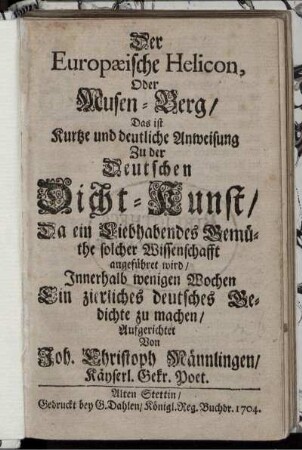 Der
Europæische Helicon,
Oder
Musen-Berg/
Das ist
Kurtze und deutliche Anweisung
Zu der
Deutschen
Dicht-Kunst/
Da ein Liebhabendes Gemü-
the solcher Wissenschafft
angeführet wird/
Innerhalb wenigen Wochen
Ein zierliches deutsches Ge-
dichte zu machen/
Aufgerichtet
Von
Joh. Christoph Männlingen/
Käyserl. Gekr. Poet.
Alten Stettin/
Gedruckt bey G. Dahlen/ Königl. Reg. Buchdr. 1704.